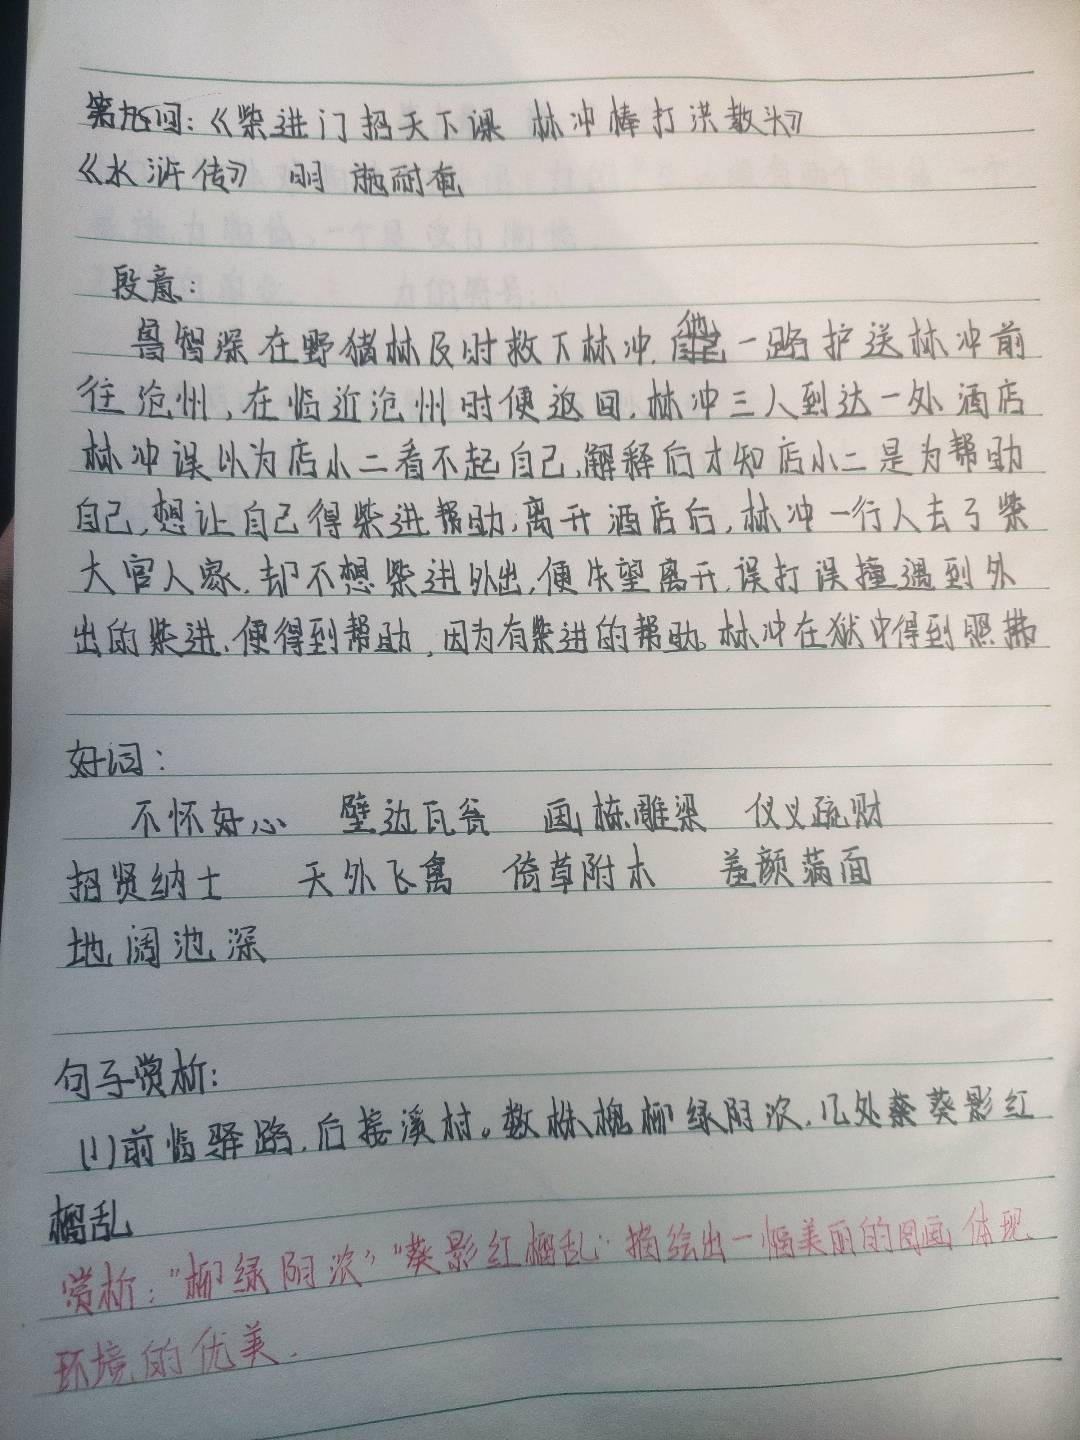 第九回：《柴进门招天下课 林冲棒打洪教头》
《水浒传》 明 施耐奄
段意：
鲁智深在野猪林及时救下林冲，他一路护送林冲前
往沧州，在临近沧州时便返回，林冲三人到达一处酒店
林冲误以为店小二看不起自己，解释后才知店小二是为帮助
自己，想让自己得柴进帮助，离开酒店后，林冲一行人去了柴
大官人家，却不想柴进外出，便失望离开，误打误撞遇到外
出的柴进，便得到帮助，因为有柴进的帮助。林冲在狱中得到照拂
好词：
不怀好心 壁边瓦瓮 画栋雕梁 仪义疏财
招贤纳士 天外飞禽 倚草附木 羞颜满面
地阔池深
句子赏析：
(1)前临驿路，后接溪村。数株槐柳绿阴浓，几处葵影红
榴乱
赏析："柳绿阴浓""葵影红榴乱"描绘出一幅美丽的图画体现
环境的优美.